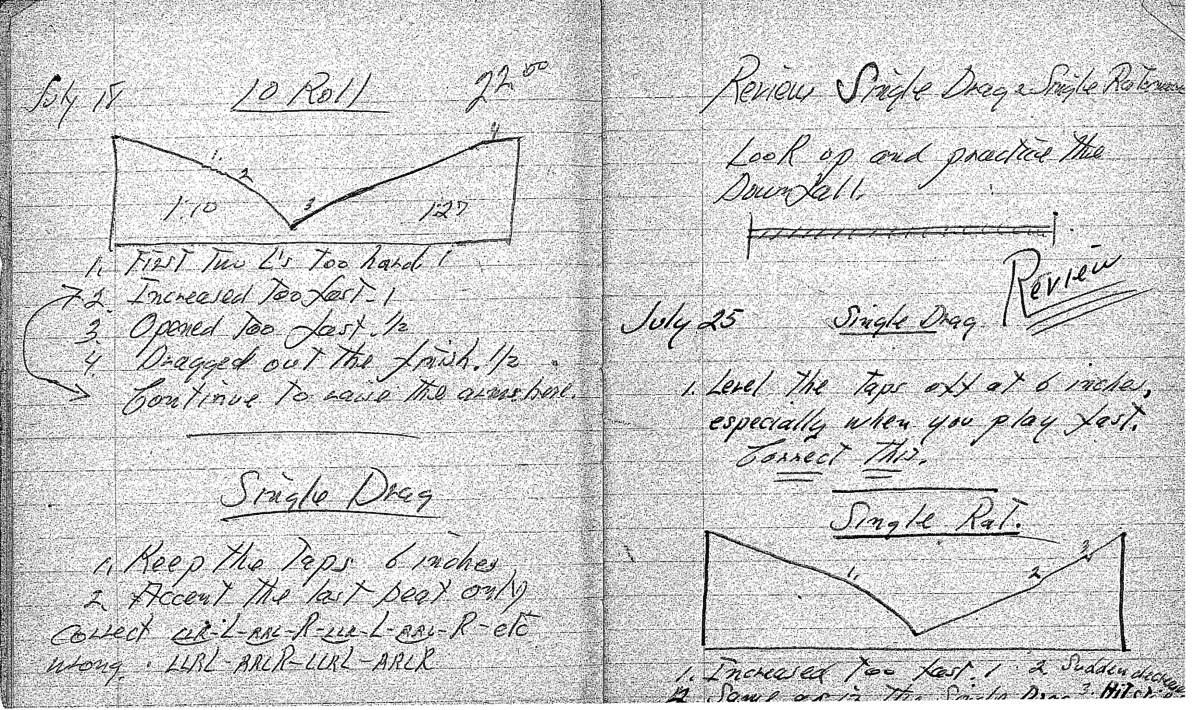 July 18 10 Roll 22 00
1. 2 3 4
1:10 1:27
1. First Two L's Too hard 1
2. Increased Too fast - 1
3. Opened Too fast. 1/2
4. Dragged out the finish. 1/2
Continue to raise the arms here.
Single Drag
1. Keep the Taps 6 inches
2. Accent the last beat only
Correct LLR-L-RRL-R-LLR-L-RRL-R-etc
wrong. LLRL-RRLR-LLRL-RRLR
Review Single Drag & Single
Look up and practice the
Downfall.
Review
July 25 Single Drag.
1. Level the Taps off at 6 inches,
especially when you play fast.
Correct This.
Single Rat.
1. 2 3
1. Increased Too fast. 1 2 Sudden
2. Same as in the Single Drag 3.